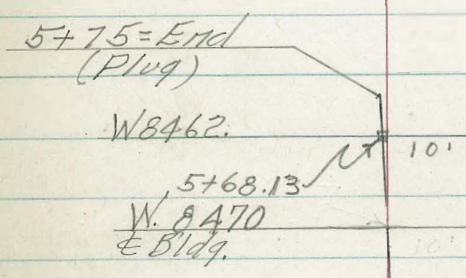 5+75=End
(Plug)
W8462.
10'
5+68.13
W. 8470
℄ Bldg.
10'